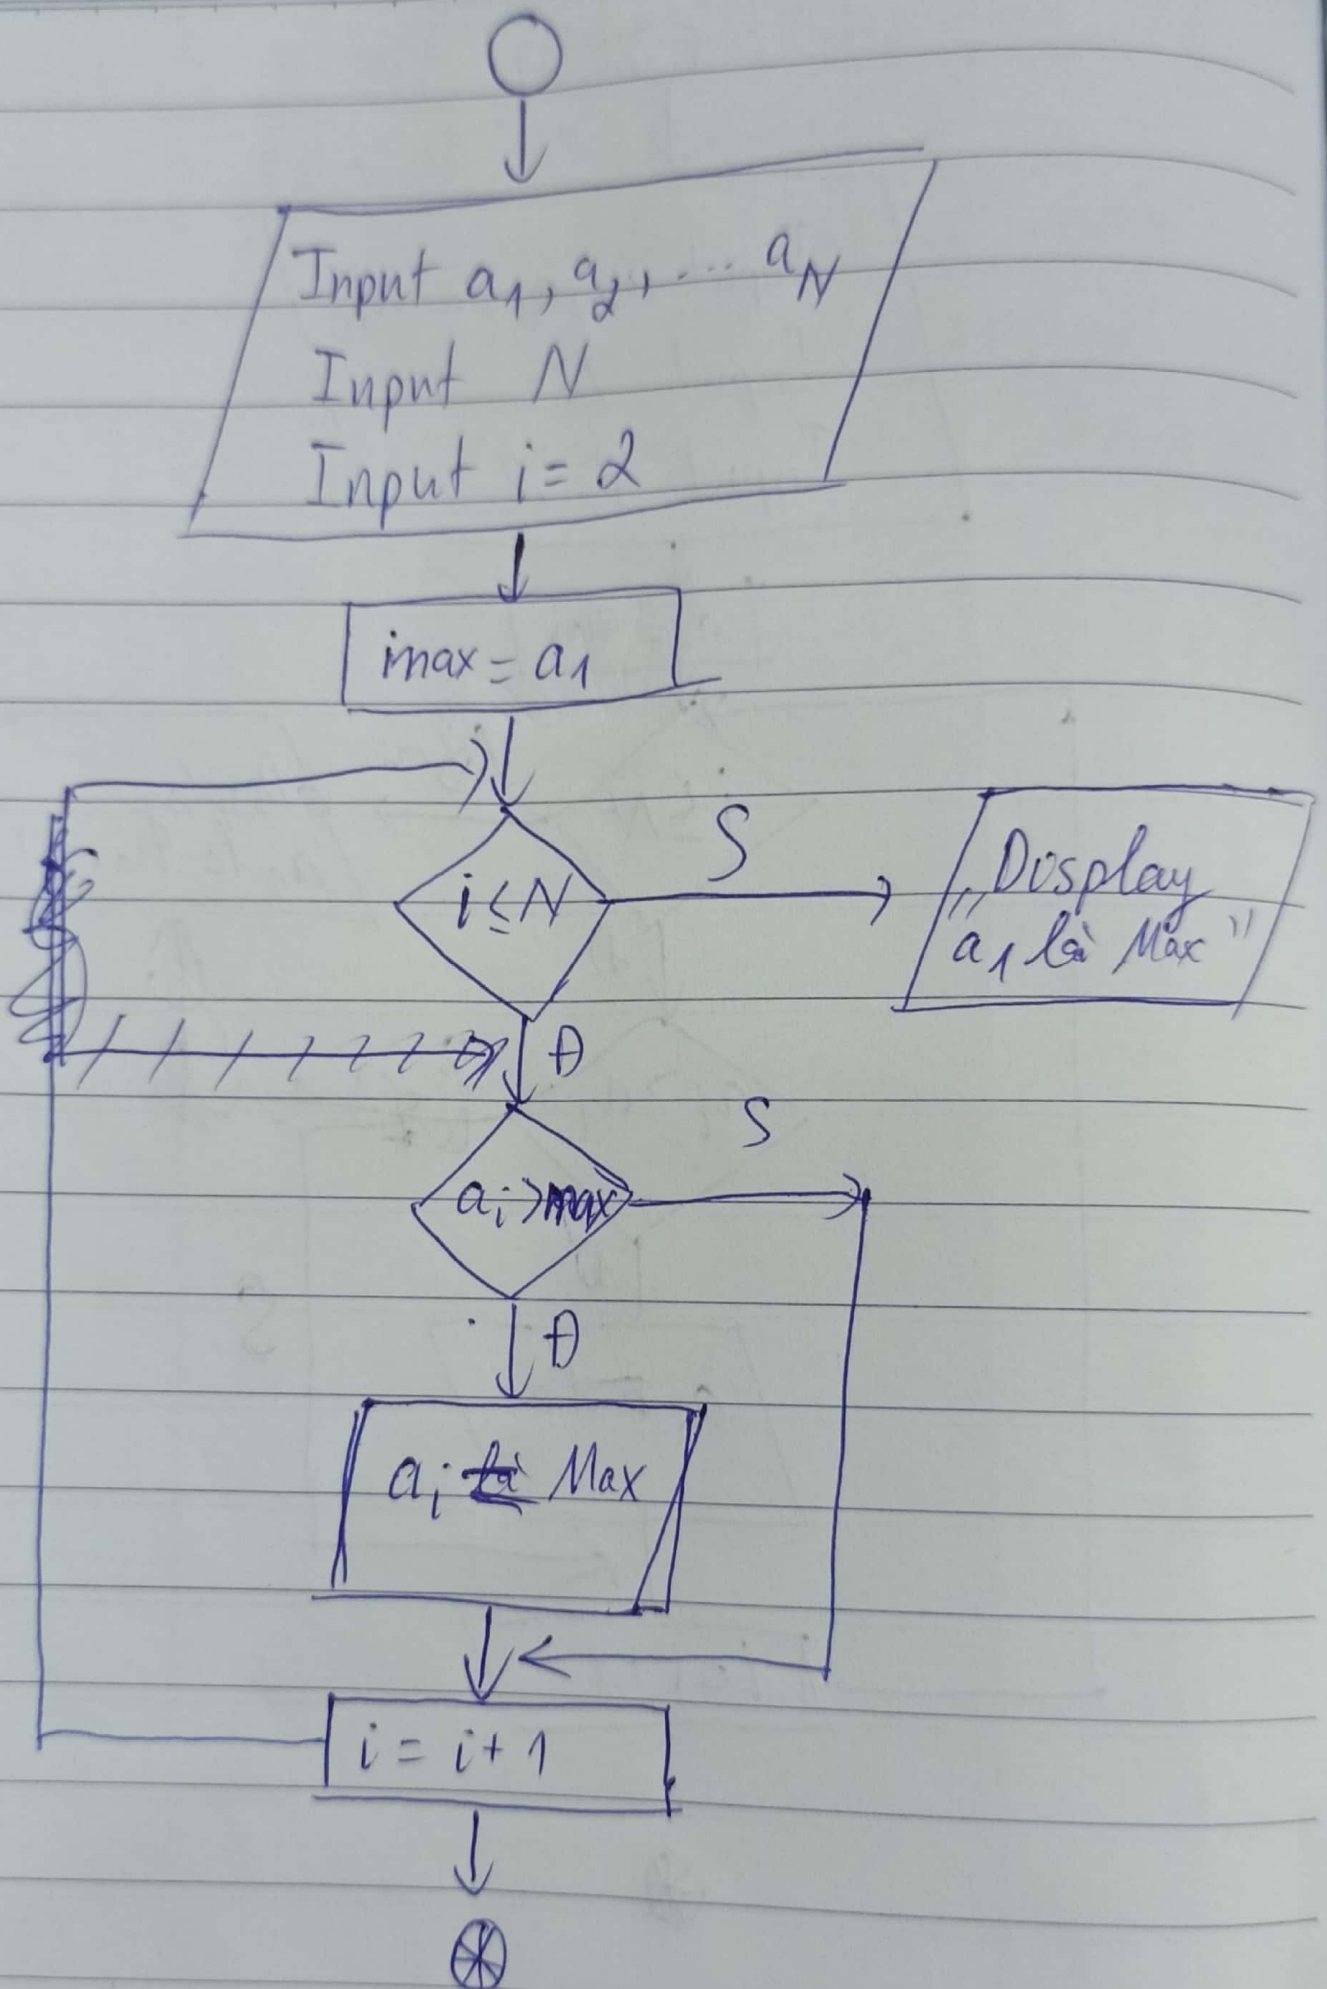 Input a1, a2, .... aN
Input N
Input i = 2
imax = a1
i ≤ N
S
"Display
a1 là Max"
Đ
ai > max
S
Đ
ai Max
i = i + 1